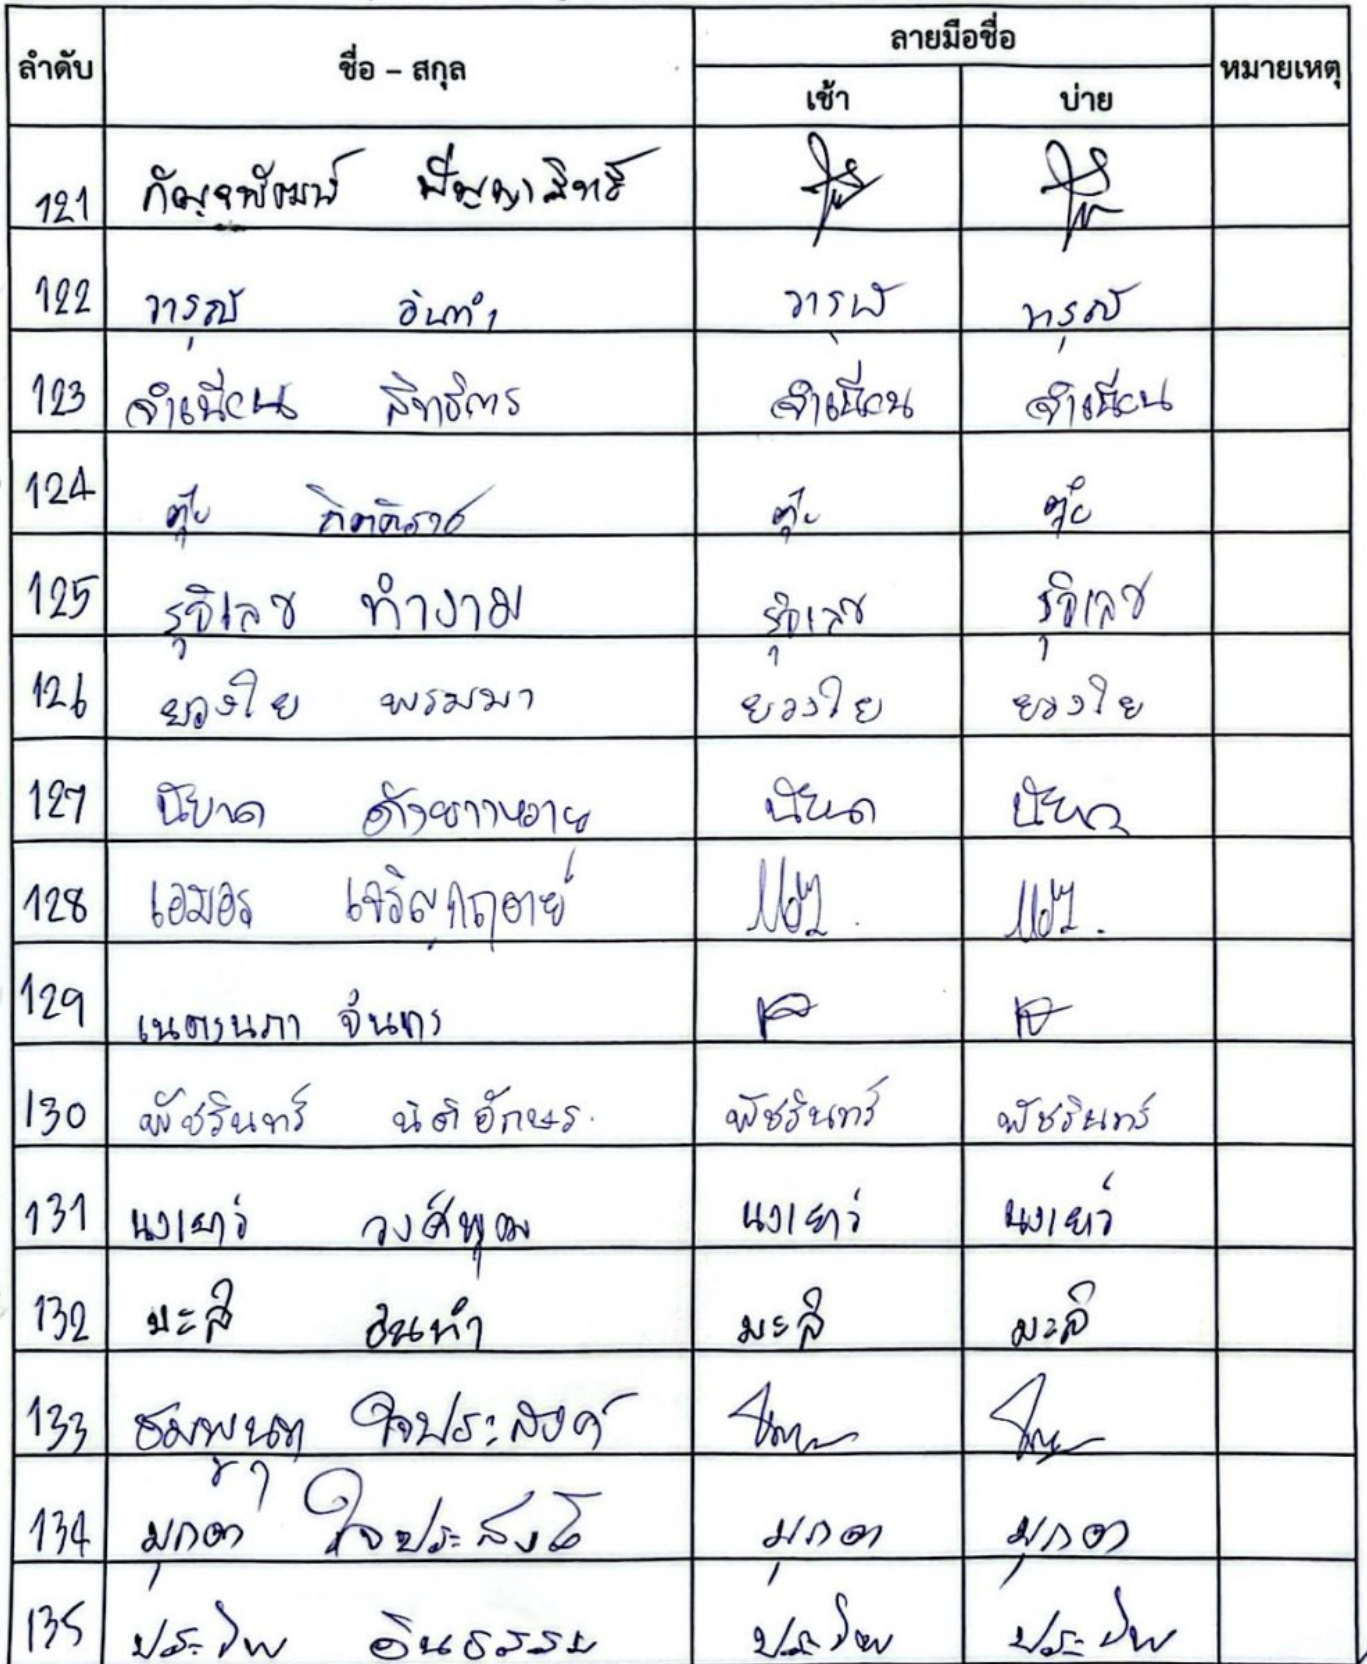 ลำดับ ชื่อ – สกุล ลายมือชื่อ หมายเหตุ
เช้า บ่าย
121 กัญจพัฒน์ ปัญญาสิทธิ์
122 วารุณี อินทำ วารุณี วารุณี
123 จำเนียน สิทธิการ จำเนียน จำเนียน
124 ตุ้ย กิตติราช ตุ้ย ตุ้ย
125 รุจิเลข ทำงาม รุจิเลข รุจิเลข
126 ยวงใย พรมมา ยวงใย ยวงใย
127
128 เอมอร เจริญฤทธิ์
129 เนตรนภา จันทร
130 พัชรินทร์ นิติอักษร พัชรินทร์ พัชรินทร์
131 นงเยาว์ วงศ์พุฒ นงเยาว์ นงเยาว์
132 มะลิ อินทำ มะลิ มะลิ
133 ชมพูนุท ใจประสงค์
134 มุกดา ใจประสงค์ มุกดา มุกดา
135 ประทีพ อินธรรม ประทีพ ประทีพ